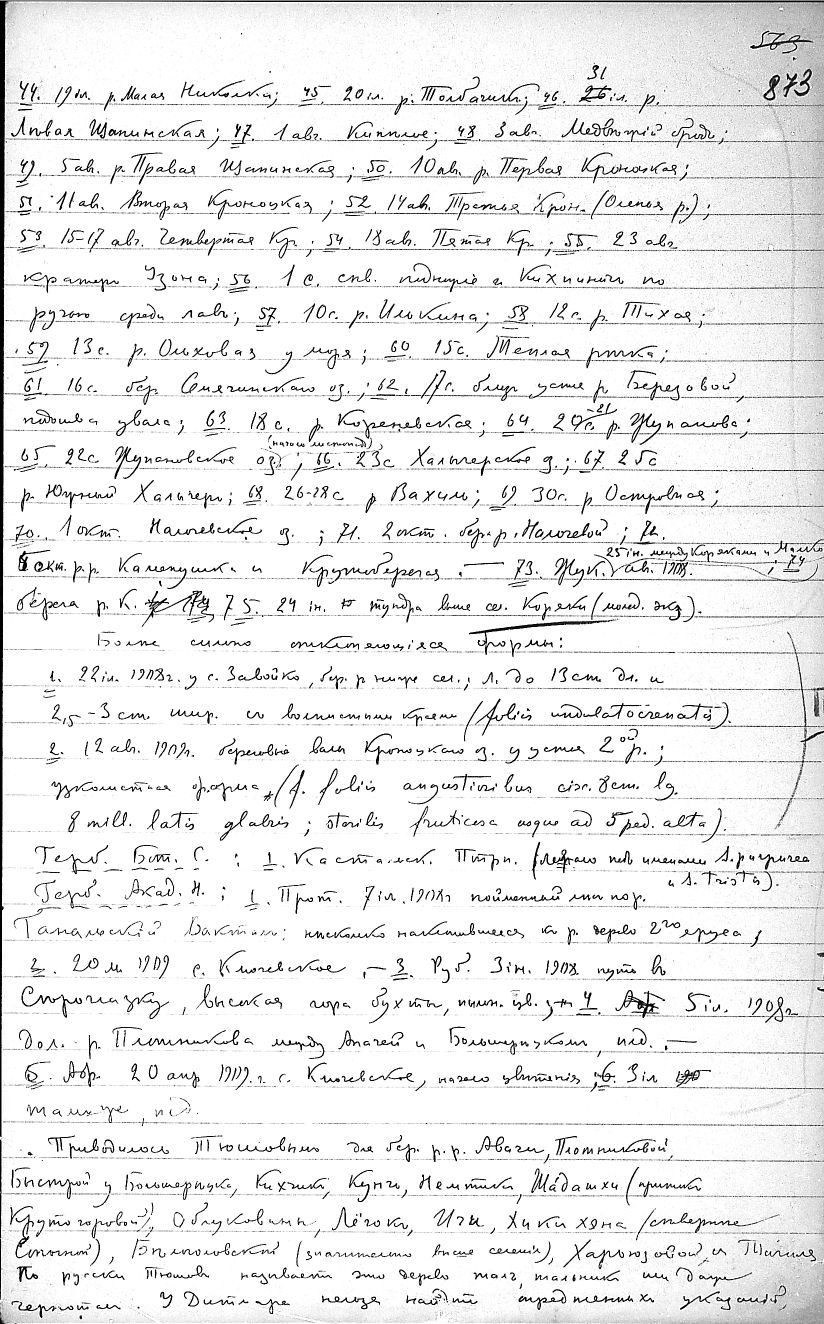 563
873
44. 19 іл. р. Малая Николка; 45. 20 іл. р. Толбачикъ; 46. 26 31 іл. р.
Лѣвая Щапинская; 47. 1 авг. Кипѣлое; 48. 3 авг. Медвѣжій бродъ;
49. 5 ав. р. Правая Щапинская; 50. 10 ав. р. Первая Кроноцкая;
51. 11 ав. Вторая Кроноцкая; 52. 14 ав. Третья Крон. (Оленья р.);
53. 15-17 авг. Четвертая Кр.; 54. 18 ав. Пятая Кр.; 55. 23 авг.
кратеръ Узона; 56. 1 с. сѣв. поднятіе Кихпиничъ по
ручью среди лавъ; 57. 10 с. р. Илькина; 58. 12 с. р. Тихая;
59 13 с. р. Ольховая у моря; 60 15 с. Теплая рѣчка;
61 16 с. бер. Семячинскаго оз.; 62. 17 с. близъ устья р. Березовой,
подошва увала; 63 18 с. р. Кореневская; 64 20-21 с. р. Жупанова;
65. 22 с Жупановское оз. (начало листопада); 66. 23 с Халыгерское о.; 67. 25 с
р. Халыгеръ; 68. 26-28 с р Вахиль; 69 30 с. р Островная;
70. 1 окт. Налочевское о.; 71. 2 окт. бер. р. Налочевой; 72.
окт. р.р. Каменушка и Крутоберегая. — 73. Жук. ав. 1908. 25 ін. между Коряками и Малко; 74
берега р. К. 75. 24 ін. тундра выше сел. Коряки (молод. экз).
Болѣе сильно отклоняющіеся формы:
1. 22 іл. 1908 г. у с. Завойко, бер. р ниже сел.; л. до 13 cm. дл. и
2,5-3 cm. шир. съ волнистыми краями (foliis undulatocrenatis).
2. 12 ав. 1909. береговые валы Кроноцкаго оз. у устья 2ой р.;
узколистная форма (f. foliis angustioribus circ. 8 cm. lg.
8 mill. latis glabris; sterilis fruticosa usque ad 5 ped. alta).
Герб. Бот. С.: 1. Кастальск. Петри. (подъ именами S. purpurea
и S. tristis).
Герб. Акад. Н.; 1. Прот. 7 іл. 1908 г пойменный лѣсъ пор.
Ганальскій Вактолъ; нѣсколько наклонившееся къ р. дерево 2го яруса;
2. 20 м 1909 с. Ключевское. — 3. Руб. 3 ін. 1908. путь въ
Старогавку, высокая гора бухты, 4. 5 іл. 1908 г
дол. р. Плотникова между Апачей и Большерѣцкомъ, плд. —
5. Авр. 20 апр 1909. г. с. Ключевское, начало цвѣтенія; 6. 3 іл
тамже, плд.
Приводилось Тюшовымъ для бер. р.р. Авачи, Плотниковой,
Быстрой у Большерѣцка, Кихчика, Кунчъ, Немтика, Шадашхи (притокъ
Крутогоровой), Облуковины, Лѣгокъ, Ичи, Хикихяна (сѣвернѣе
Сопочной), Бѣлоголовской (значительно выше селенія), Харьюзовой и Тигиля
По русски Тюшовъ называетъ это дерево талъ, тальникъ или даже
чернотал. У Дитмара нельзя найти опредѣленныхъ указаній,